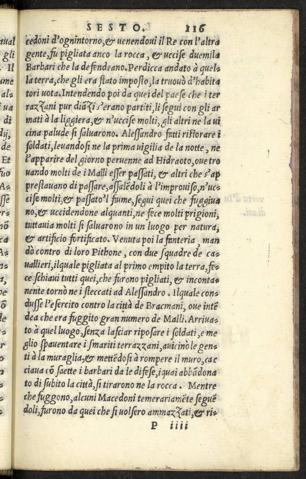 SESTO. 216
cedoni d'ognintorno, & uenendoui il Re con l'altra
gente, fu pigliata anco la rocca, & uccise dumila
Barbari che la defendeano. Perdicca andato à quel-
la terra, che gli era stato imposto, la truouò d'habita
tori vota. Intendendo poi da quei del paese che i ter
razzani pur diãzi s'erano partiti, li seguì con gli ar
mati à la liggiera, & n'uccise molti, gli altri ne la ui
cina palude si saluarono. Alessandro fatti ristorare i
soldati, leuandosi ne la prima vigilia de la notte, ne
l'apparire del giorno peruenne ad Hidraoto, oue tro
uando molti de i Malli esser passati, & altri che s'ap
prestauano di passare, assalẽdoli à l'improuiso, n'uc-
cise molti, & passato'l fiume, seguì quei che fuggiua
no, & uccidendone alquanti, ne fece molti prigioni,
tuttauia molti si saluarono in un luogo per natura,
& artificio fortificato. Venuta poi la fanteria, man
dò contro di loro Pithone, con due squadre de ca-
uallieri, ilquale pigliata al primo empito la terra, fe-
ce schiaui tutti quei, che furono pigliati, & inconta-
nente tornò ne i steccati ad Alessandro. Ilquale con-
dusse l'esercito contro la città de Bracmani, oue intẽ
dea che era fuggito gran numero de Malli. Arriua-
to à quel luogo, senza lasciar riposare i soldati, e me
glio spauentare i smariti terrazzani, auicinò le gen-
ti à la muraglia, & mettẽdosi à rompere il muro, cac
ciaua cõ saette i barbari da le difese, iquai abbãdona
to di subito la città, si tirarono ne la rocca. Mentre
che fuggono, alcuni Macedoni temerariamẽte seguẽ
doli, furono da quei che si volsero ammazzati, & ri-
P iiii